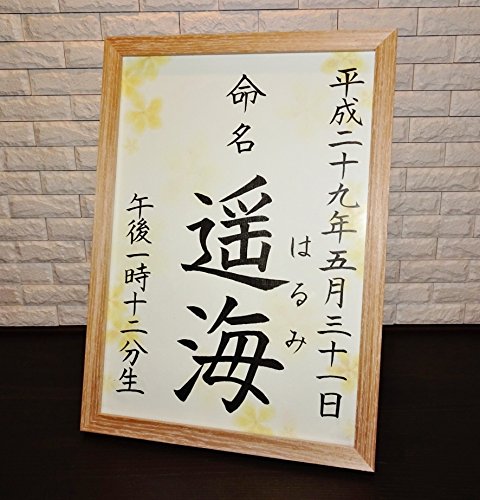 平成二十九年五月三十一日
命名
遥海
はるみ
午後一時十二分生